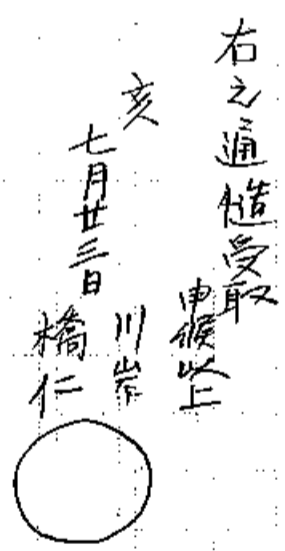 右之通慥受取
申候以上
亥
七月廿三日
川岸
橋仁